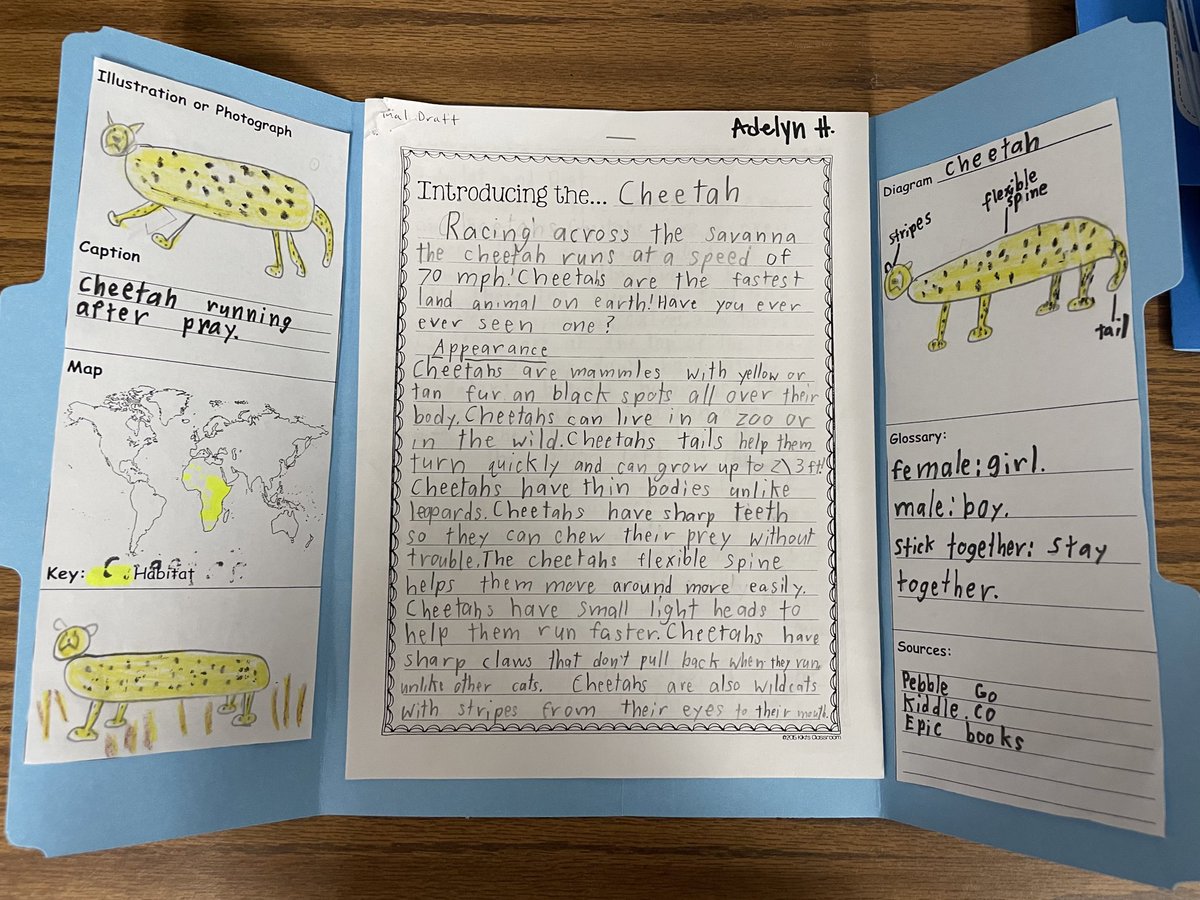 Illustration or Photograph
Caption
Cheetah running
after pray.
Map
Key: Habitat
inal Draft
Adelyn H.
Introducing the... Cheetah
Racing across the savanna
the cheetah runs at a speed of
70 mph! Cheetahs are the fastest
land animal on earth! Have you ever
ever seen one?
Appearance
Cheetahs are mammles with yellow or
tan fur an black spots all over their
body. Cheetahs can live in a zoo or
in the wild. Cheetahs tails help them
turn quickly and can grow up to 2\3 ft!
Cheetahs have thin bodies unlike
leapards. Cheetahs have sharp teeth
so they can chew their prey without
trouble. The cheetahs flexible spine
helps them move around more easily.
Cheetahs have small light heads to
help them run faster. Cheetahs have
sharp claws that don't pull back when they run
unlike other cats. Cheetahs are also wildcats
with stripes from their eyes to their mouth.
©2015 Kiki's Classroom
Diagram Cheetah
stripes
flexible
spine
tail
Glossary:
female: girl.
male: boy.
Stick together: stay
together.
Sources:
Pebble Go
Kiddle.co
Epic books